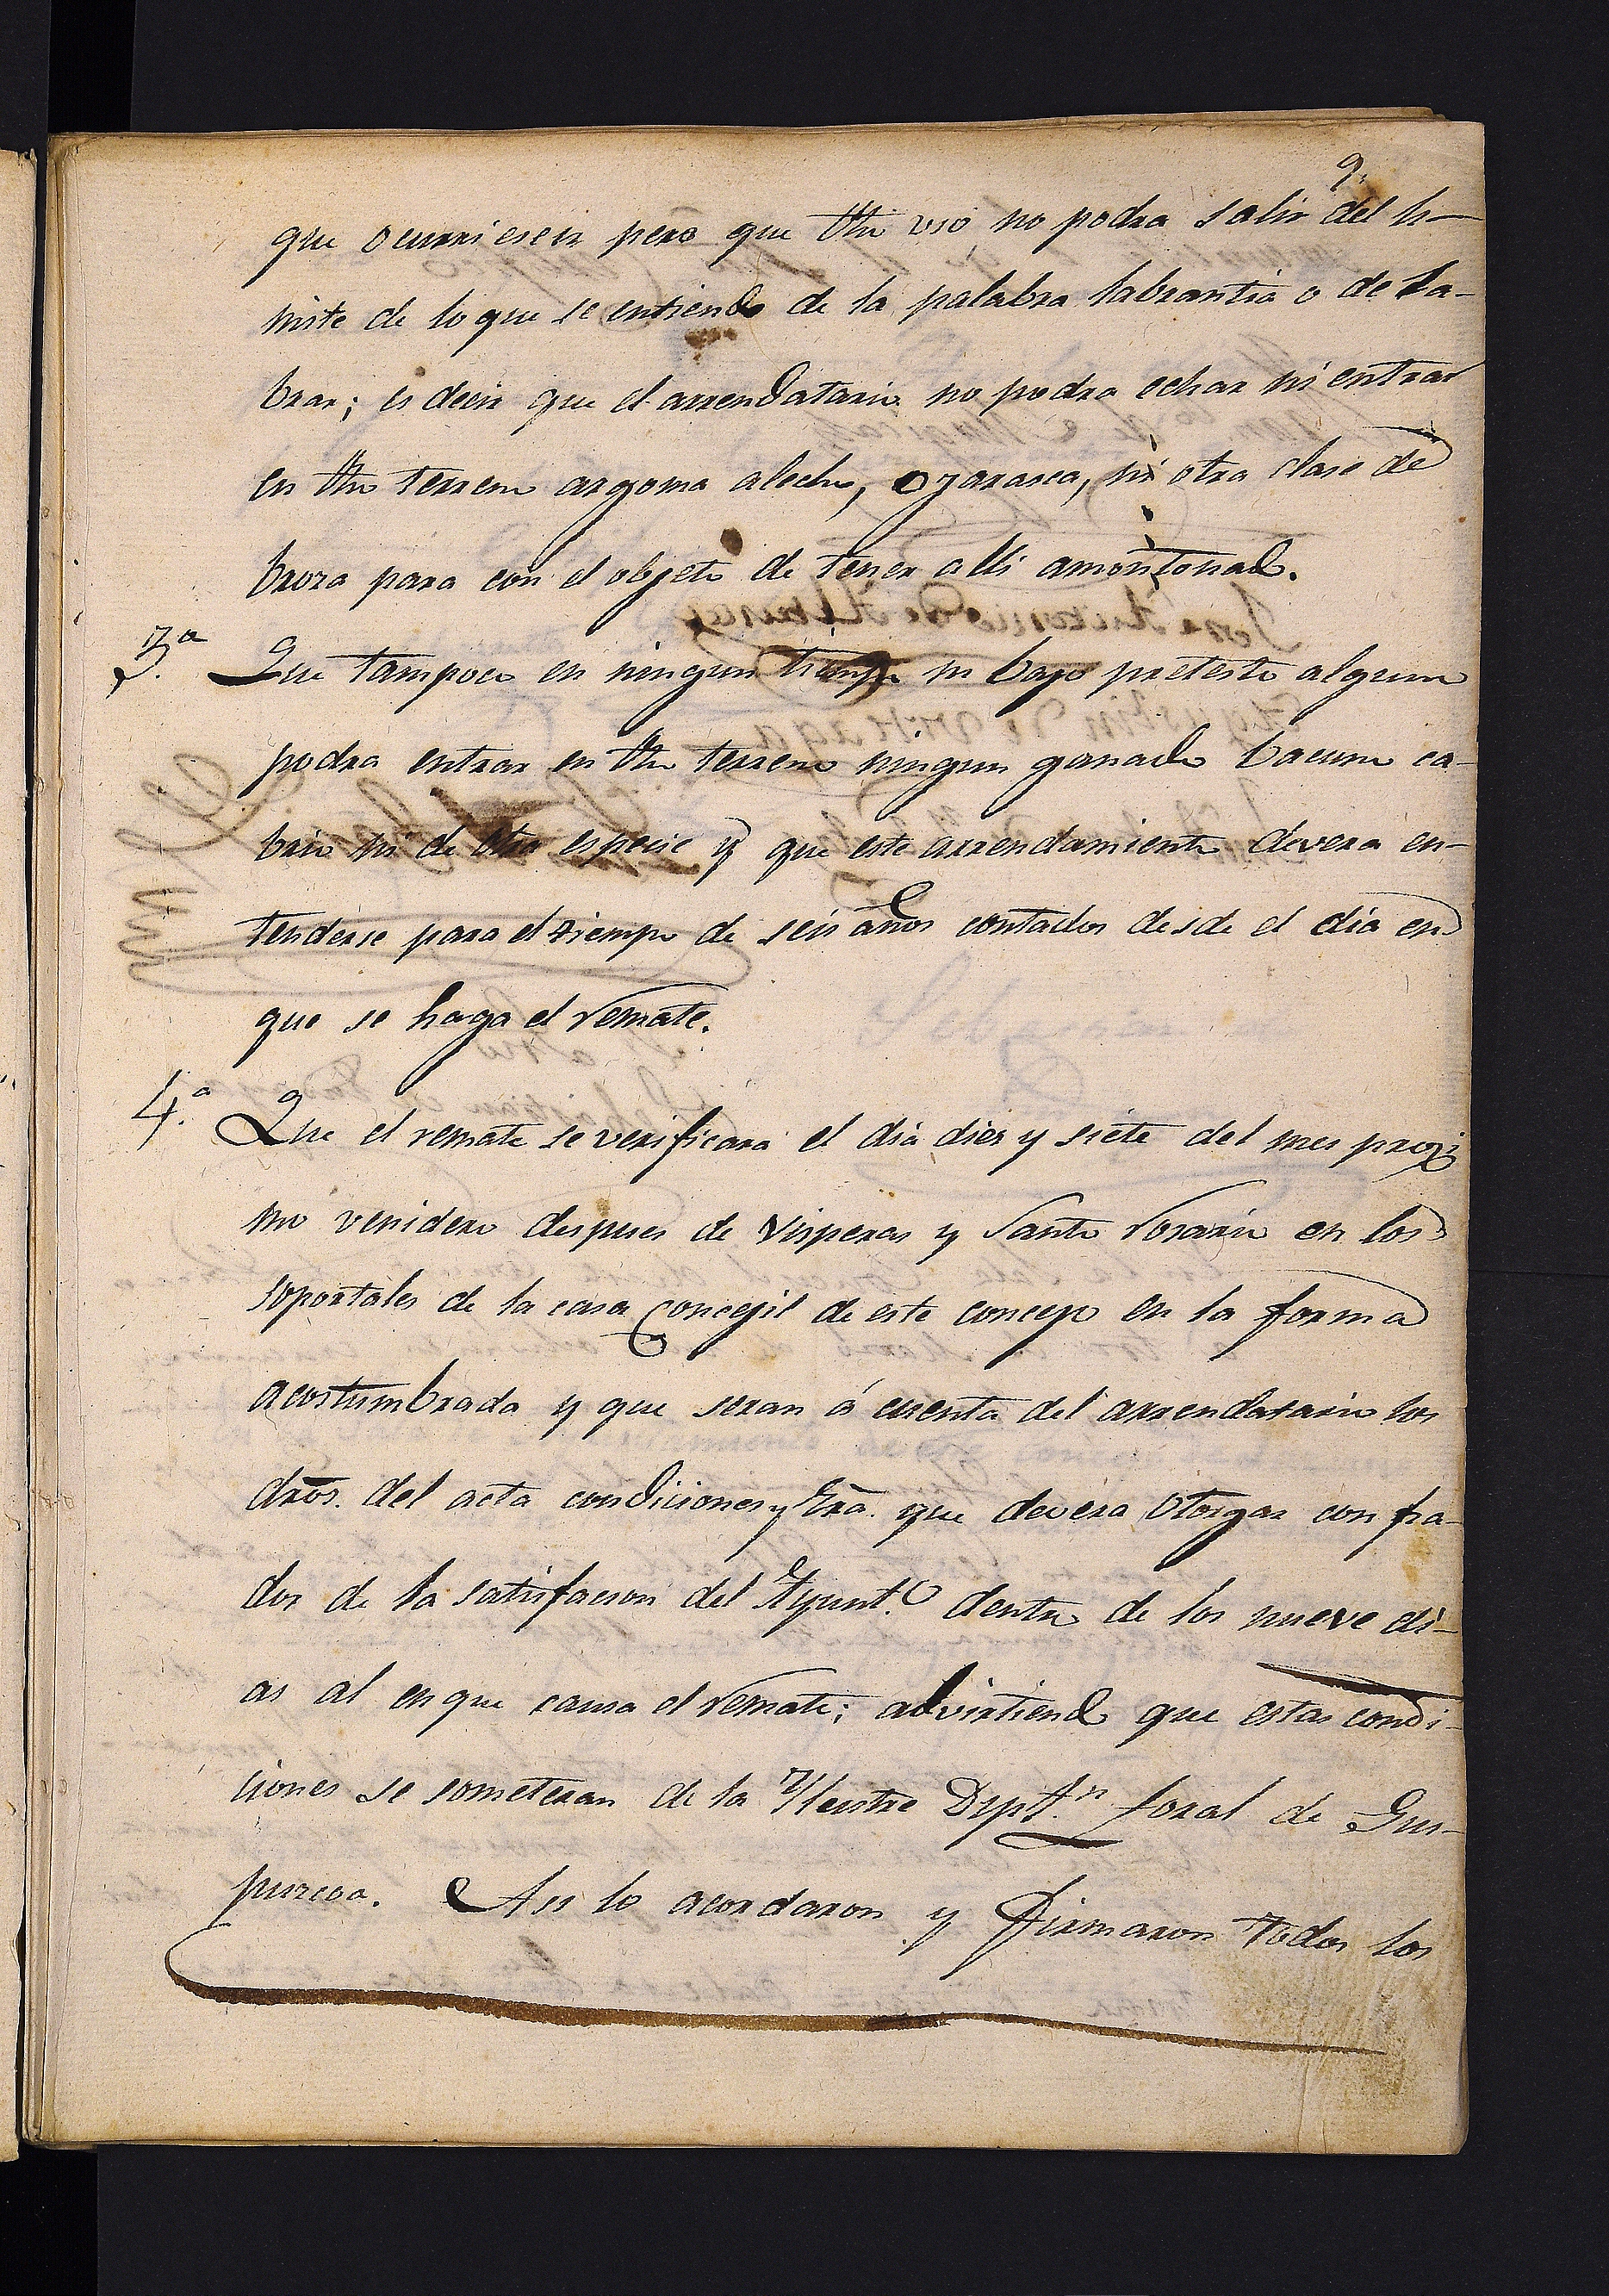 9.
que ocurriesen pero que dho uso no podra salir del li-
mite de lo que se entiende de la palabra labrantia o de la-
brar; es decir que el arrendatario no podra echar ni entrar
en dho terreno argoma alecho, o jarasca, ni otra clase de
broza para con el objeto de tener alli amontonado.
3.ª Que tampoco en ningun tiempo ni bajo pretesto alguno
podra entrar en dho terreno ningun ganado bacuno ca-
brio ni de otra especie y que este arrendamiento devera en-
tenderse para el tiempo de seis años contados desde el dia en
que se haga el remate.
4.ª Que el remate se verificará el dia diez y siete del mes proxi
mo venidero despues de visperas y Santo rosario en los
soportales de la casa Concejil de este concejo en la forma
acostumbrada y que seran á cuenta del arrendatario los
dros. del acta condiciones y Esra. que devera otorgar con fia-
dor de la satisfacion del Ayunt.o dentro de los nueve di-
as al en que causa el remate; advirtiendo que estas condi-
ciones se someteran de la Yllustre Dipt.n foral de Gui-
puzcoa. Asi lo acordaron y firmaron todos los